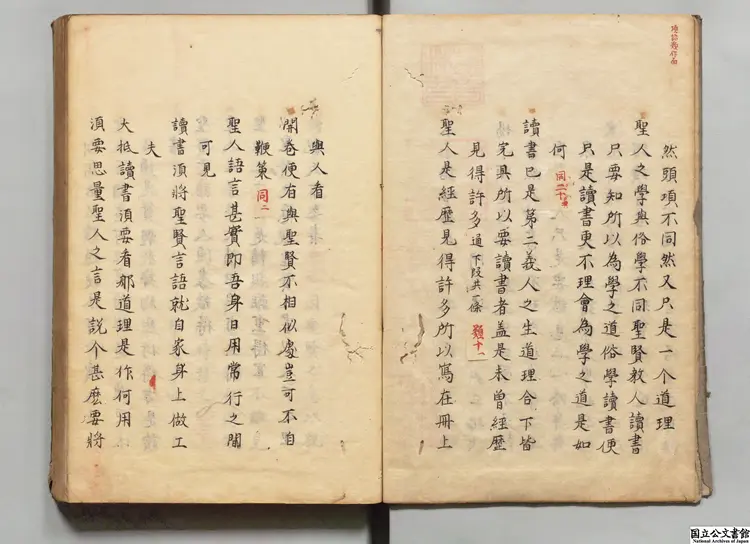 然頭項不同然又只是一个道理
聖人之學與俗學不同聖賢教人讀書
只要知所以為學之道俗學讀書便
只是讀書更不理會為學之道是如
何 同二十
讀書已是第二義人之生道理合下皆
完具所以要讀書者蓋是未曾經歷
見得許多道 下段共一條 類十一
聖人是經歷見得許多所以寫在冊上
與人看
開卷便有與聖賢不相似處豈可不自
鞭策 同二
聖人語言甚實即吾身日用常行之間
可見
讀書須將聖賢言語就自家身上做工
夫
大抵讀書須要看那道理是作何用
須要思量聖人之言是說个甚麼要將
国立公文書館
National Archives of Japan